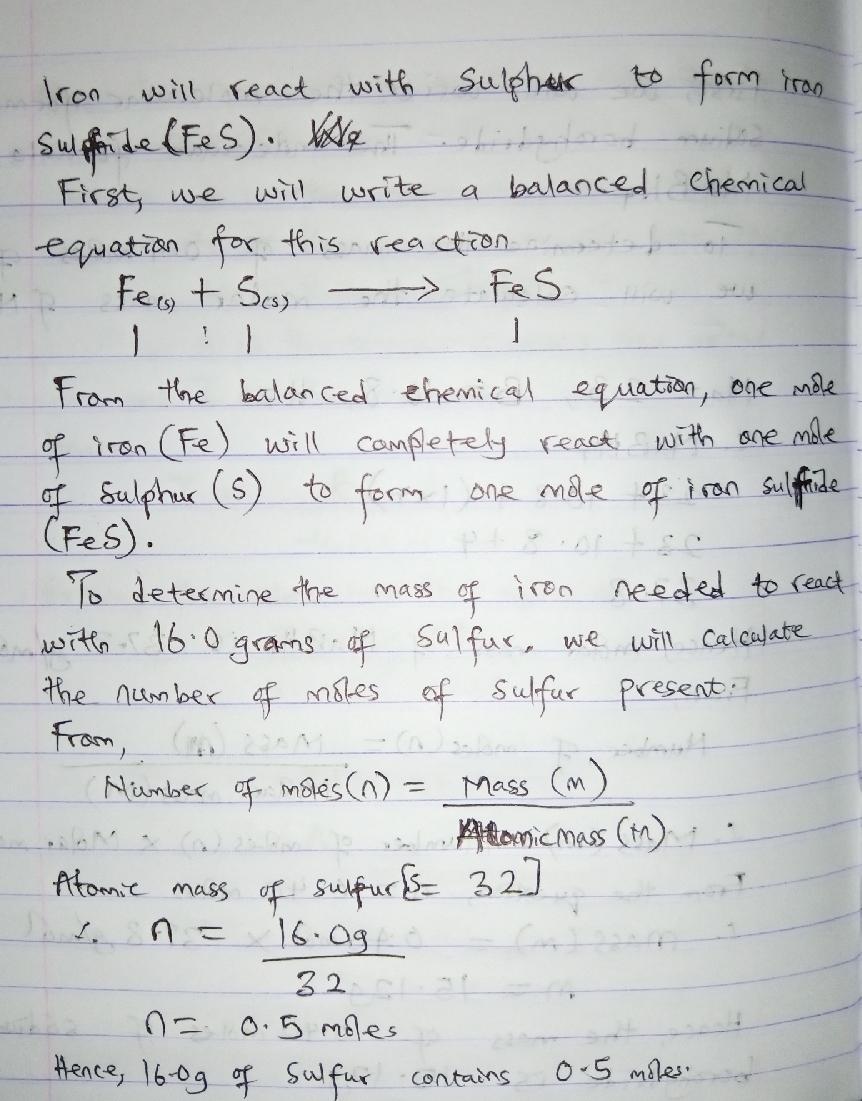 Iron will react with Sulphur to form iron
Sulphide (FeS).
First, we will write a balanced chemical
equation for this reaction
Fe(s) + S(s) → FeS
1 : 1 1
From the balanced chemical equation, one mole
of iron (Fe) will completely react with one mole
of Sulphur (S) to form one mole of iron sulfide
(FeS).
To determine the mass of iron needed to react
with 16.0 grams of Sulfur, we will calculate
the number of moles of sulfur present.
From,
Number of moles (n) = Mass (m)
Atomic mass (m)
Atomic mass of sulfur [S= 32]
∴ n = 16.0g
32
n = 0.5 moles
Hence, 16.0g of Sulfur contains 0.5 moles.